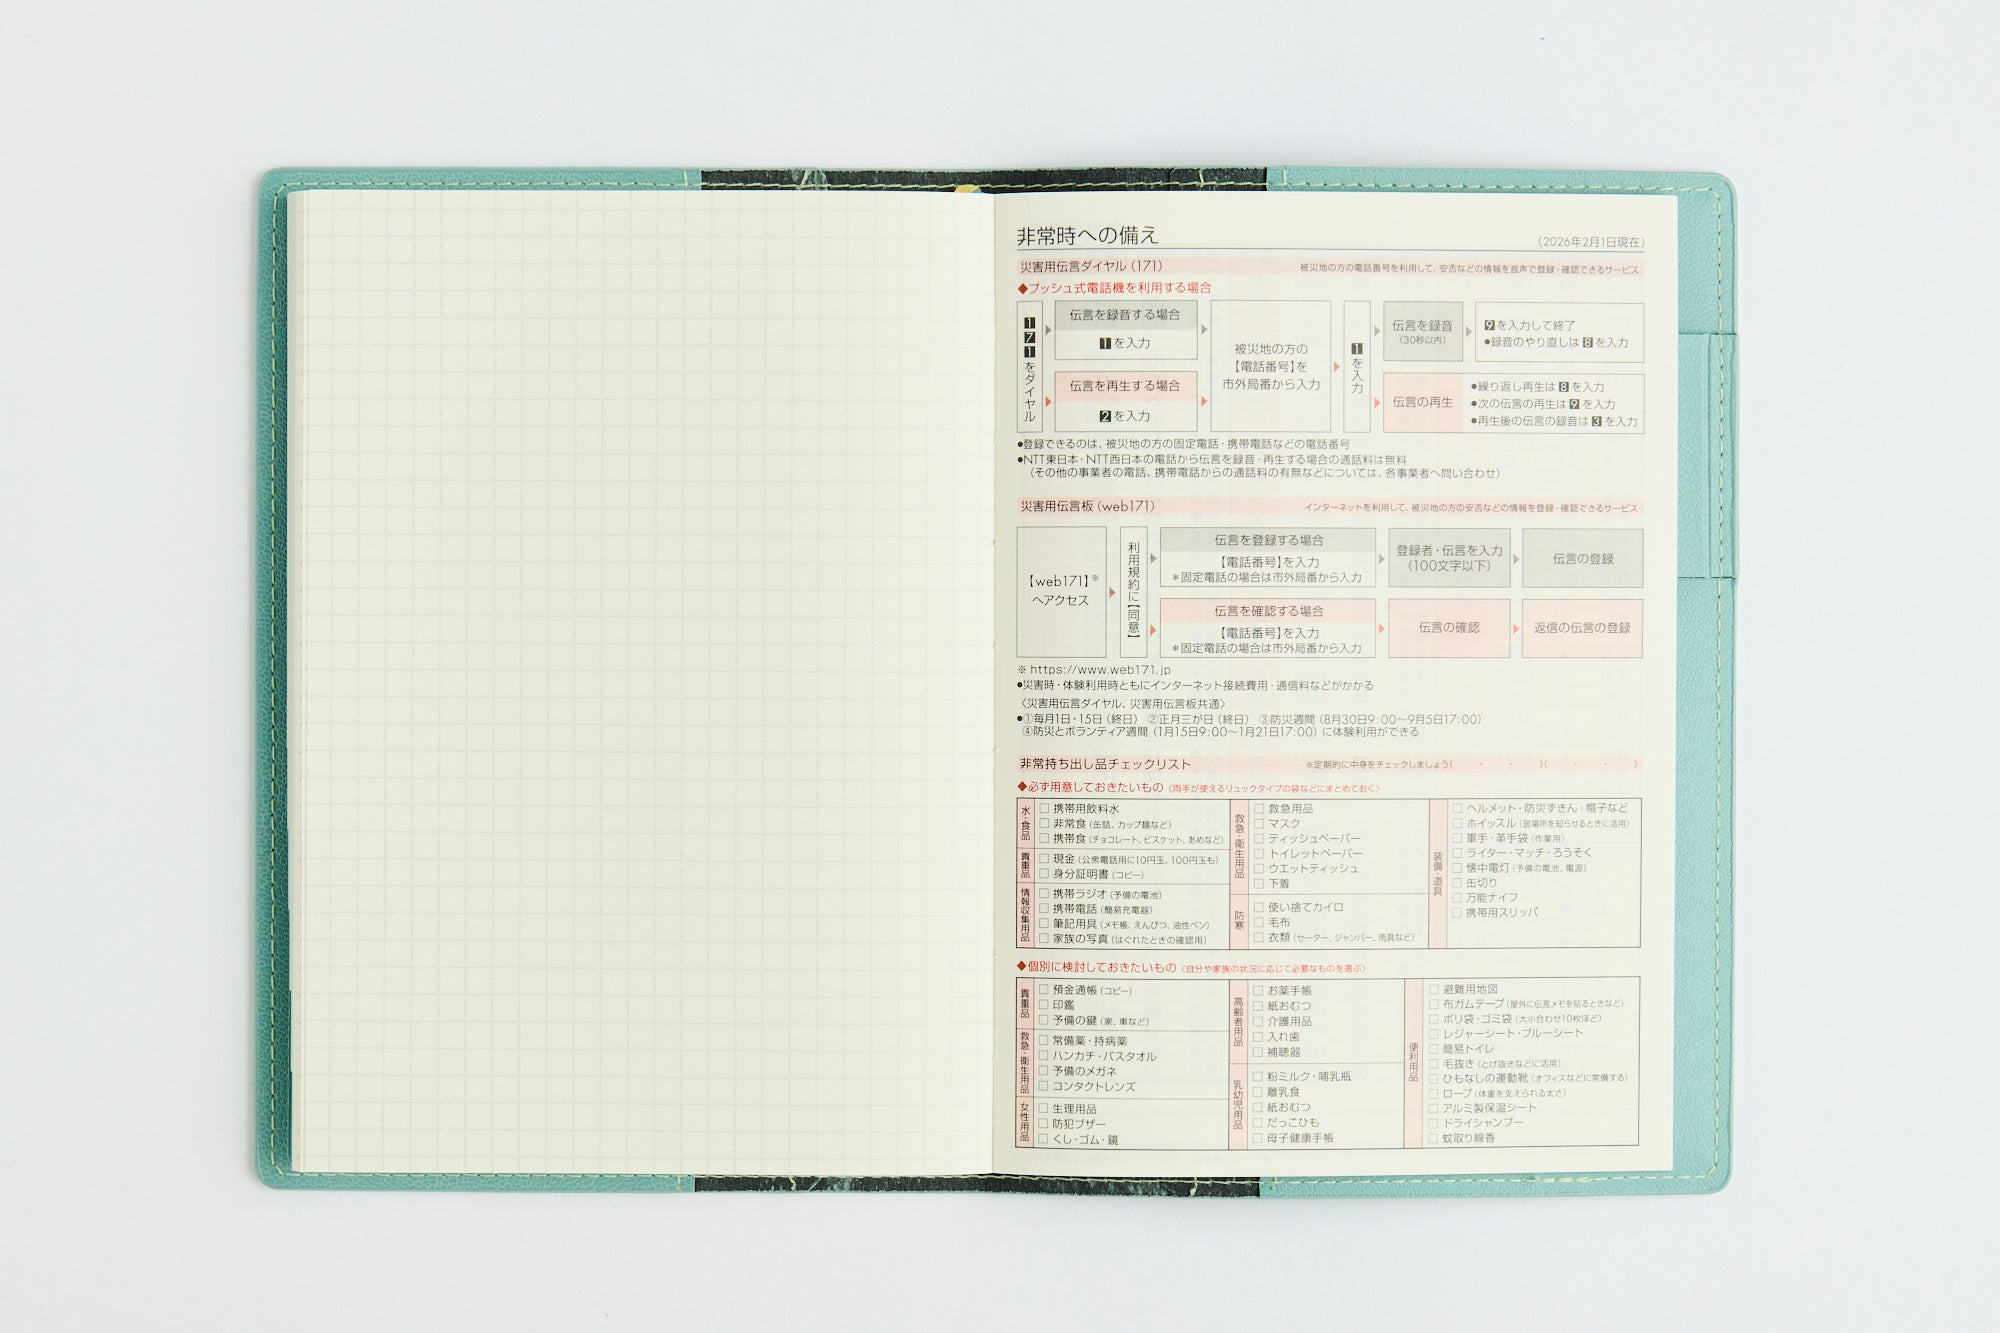 非常時への備え
(2026年2月1日現在)
災害用伝言ダイヤル(171)
被災地の方の電話番号を利用して、安否などの情報を音声で登録・確認できるサービス
◆プッシュ式電話機を利用する場合
171をダイヤル
伝言を録音する場合
1を入力
伝言を再生する場合
2を入力
被災地の方の
【電話番号】を
市外局番から入力
1を入力
伝言を録音
(30秒以内)
9を入力して終了
●録音のやり直しは8を入力
伝言の再生
●繰り返し再生は8を入力
●次の伝言の再生は9を入力
●再生後の伝言の録音は3を入力
●登録できるのは、被災地の方の固定電話・携帯電話などの電話番号
●NTT東日本・NTT西日本の電話から伝言を録音・再生する場合の通話料は無料
(その他の事業者の電話、携帯電話からの通話料の有無などについては、各事業者へ問い合わせ)
災害用伝言板(web171)
インターネットを利用して、被災地の方の安否などの情報を登録・確認できるサービス
【web171】※
へアクセス
利用規約に【同意】
伝言を登録する場合
【電話番号】を入力
＊固定電話の場合は市外局番から入力
登録者・伝言を入力
(100文字以下)
伝言の登録
伝言を確認する場合
【電話番号】を入力
＊固定電話の場合は市外局番から入力
伝言の確認
返信の伝言の登録
※ https://www.web171.jp
●災害時・体験利用時ともにインターネット接続費用・通信料などがかかる
〈災害用伝言ダイヤル、災害用伝言板共通〉
●①毎月1日・15日(終日) ②正月三が日(終日) ③防災週間(8月30日9:00～9月5日17:00)
④防災とボランティア週間(1月15日9:00～1月21日17:00)に体験利用ができる
非常持ち出し品チェックリスト
※定期的に中身をチェックしましょう( ・ ・ )( ・ ・ )
◆必ず用意しておきたいもの〈両手が使えるリュックタイプの袋などにまとめておく〉
水・食品
□携帯用飲料水
□非常食(缶詰、カップ麺など)
□携帯食(チョコレート、ビスケット、あめなど)
貴重品
□現金(公衆電話用に10円玉、100円玉も)
□身分証明書(コピー)
情報収集用品
□携帯ラジオ(予備の電池)
□携帯電話(簡易充電器)
□筆記用具(メモ帳、えんぴつ、油性ペン)
□家族の写真(はぐれたときの確認用)
救急・衛生用品
□救急用品
□マスク
□ティッシュペーパー
□トイレットペーパー
□ウエットティッシュ
□下着
防寒
□使い捨てカイロ
□毛布
□衣類(セーター、ジャンパー、雨具など)
装備・道具
□ヘルメット・防災ずきん・帽子など
□ホイッスル(居場所を知らせるときに活用)
□軍手・革手袋(作業用)
□ライター・マッチ・ろうそく
□懐中電灯(予備の電池、電源)
□缶切り
□万能ナイフ
□携帯用スリッパ
◆個別に検討しておきたいもの〈自分や家族の状況に応じて必要なものを選ぶ〉
貴重品
□預金通帳(コピー)
□印鑑
□予備の鍵(家、車など)
救急・衛生用品
□常備薬・持病薬
□ハンカチ・バスタオル
□予備のメガネ
□コンタクトレンズ
女性用品
□生理用品
□防犯ブザー
□くし・ゴム・鏡
高齢者用品
□お薬手帳
□紙おむつ
□介護用品
□入れ歯
□補聴器
乳幼児用品
□粉ミルク・哺乳瓶
□離乳食
□紙おむつ
□だっこひも
□母子健康手帳
便利用品
□避難用地図
□布ガムテープ(屋外に伝言メモを貼るときなど)
□ポリ袋・ゴミ袋(大小合わせ10枚ほど)
□レジャーシート・ブルーシート
□簡易トイレ
□毛抜き(とげ抜きなどに活用)
□ひもなしの運動靴(オフィスなどに常備する)
□ロープ(体重を支えられる太さ)
□アルミ製保温シート
□ドライシャンプー
□蚊取り線香